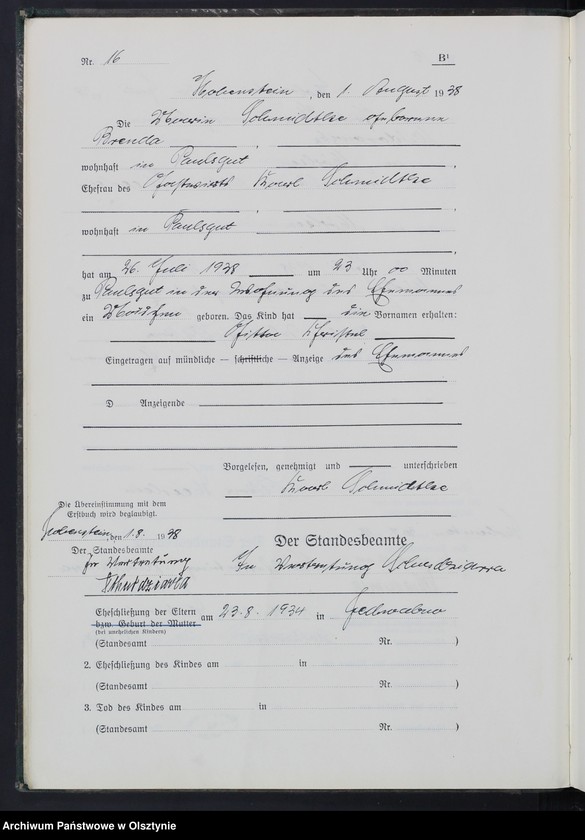 Nr. 16 B¹
Hohenstein, den 1. August 1938
Die Marie Schmidtke geborene
Brenda
wohnhaft in Paulsgut
Ehefrau des Karl Schmidtke
wohnhaft in Paulsgut
hat am 26. Juli 1938 um 23 Uhr 00 Minuten
zu Paulsgut in der Wohnung des Ehemannes
ein Mädchen geboren. Das Kind hat die Vornamen erhalten:
Christel
Eingetragen auf mündliche — schriftliche — Anzeige des Ehemannes
D Anzeigende
Vorgelesen, genehmigt und unterschrieben
Karl Schmidtke
Die Übereinstimmung mit dem
Erstbuch wird beglaubigt.
Hohenstein, den 1. 8. 1938
Der Standesbeamte
In Vertretung
Der Standesbeamte
In Vertretung
Eheschließung der Eltern am 23. 8. 1934 in Jedwabno
bzw. Geburt der Mutter
(bei unehelichen Kindern)
(Standesamt Nr. )
2. Eheschließung des Kindes am in
(Standesamt Nr. )
3. Tod des Kindes am in
(Standesamt Nr. )
Archiwum Państwowe w Olsztynie